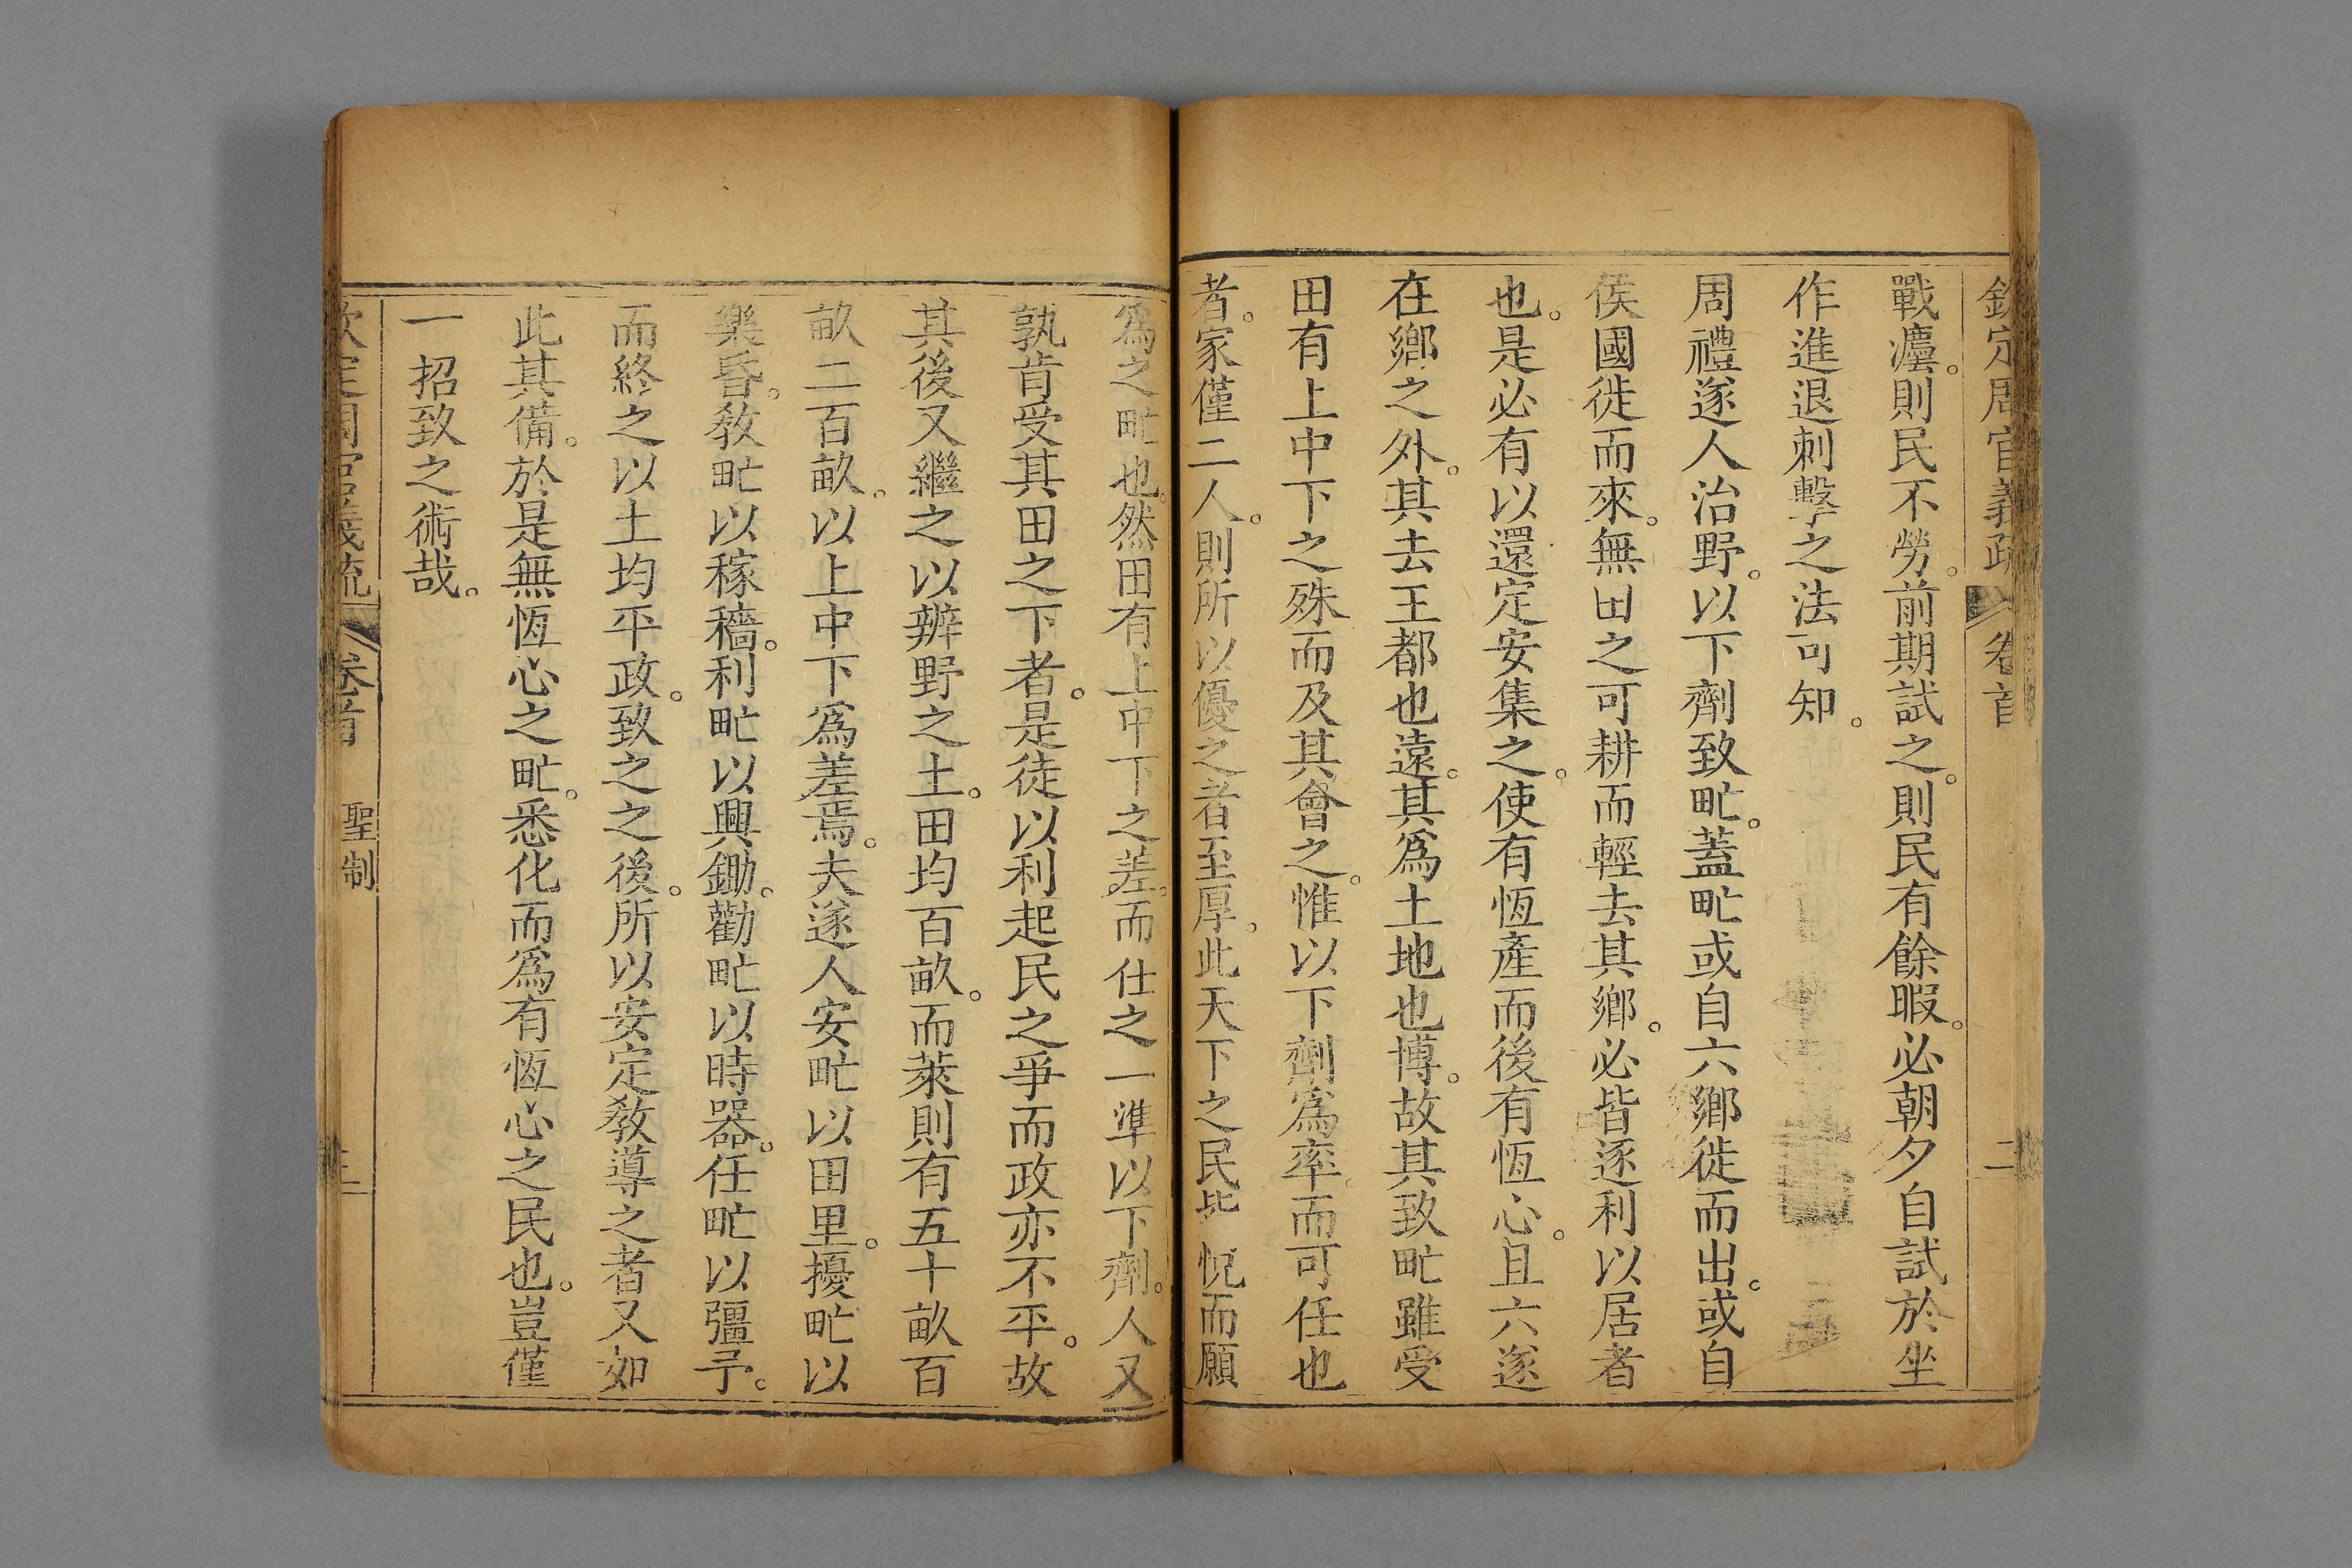 欽定周官義疏 卷首 二
戰灋。則民不勞。前期試之。則民有餘暇。必朝夕自試於坐
作進退刺擊之法可知。
周禮遂人治野。以下劑致甿。蓋甿或自六鄉徙而出。或自
侯國徙而來。無田之可耕而輕去其鄉。必皆逐利以居者
也。是必有以還定安集之。使有恆產而後有恆心。且六遂
在鄉之外。其去王都也遠。其為土地也博。故其致甿雖受
田有上中下之殊而及其會之。惟以下劑為率。而可任也
者。家僅二人。則所以優之者至厚。此天下之民皆悅而願
為之甿也。然田有上中下之差。而仕之一準以下劑。人又
孰肯受其田之下者。是徒以利起民之爭而政亦不平。故
其後又繼之以辨野之土。田均百畝。而萊則有五十畝百
畝二百畝。以上中下為差焉。夫遂人安甿以田里。擾甿以
樂昏。教甿以稼穡。利甿以興鋤。勸甿以時器。任甿以彊予。
而終之以土均平政。致之之後。所以安定教導之者又如
此其備。於是無恆心之甿。悉化而為有恆心之民也。豈僅
一招致之術哉。
欽定周官義疏 卷首 聖制